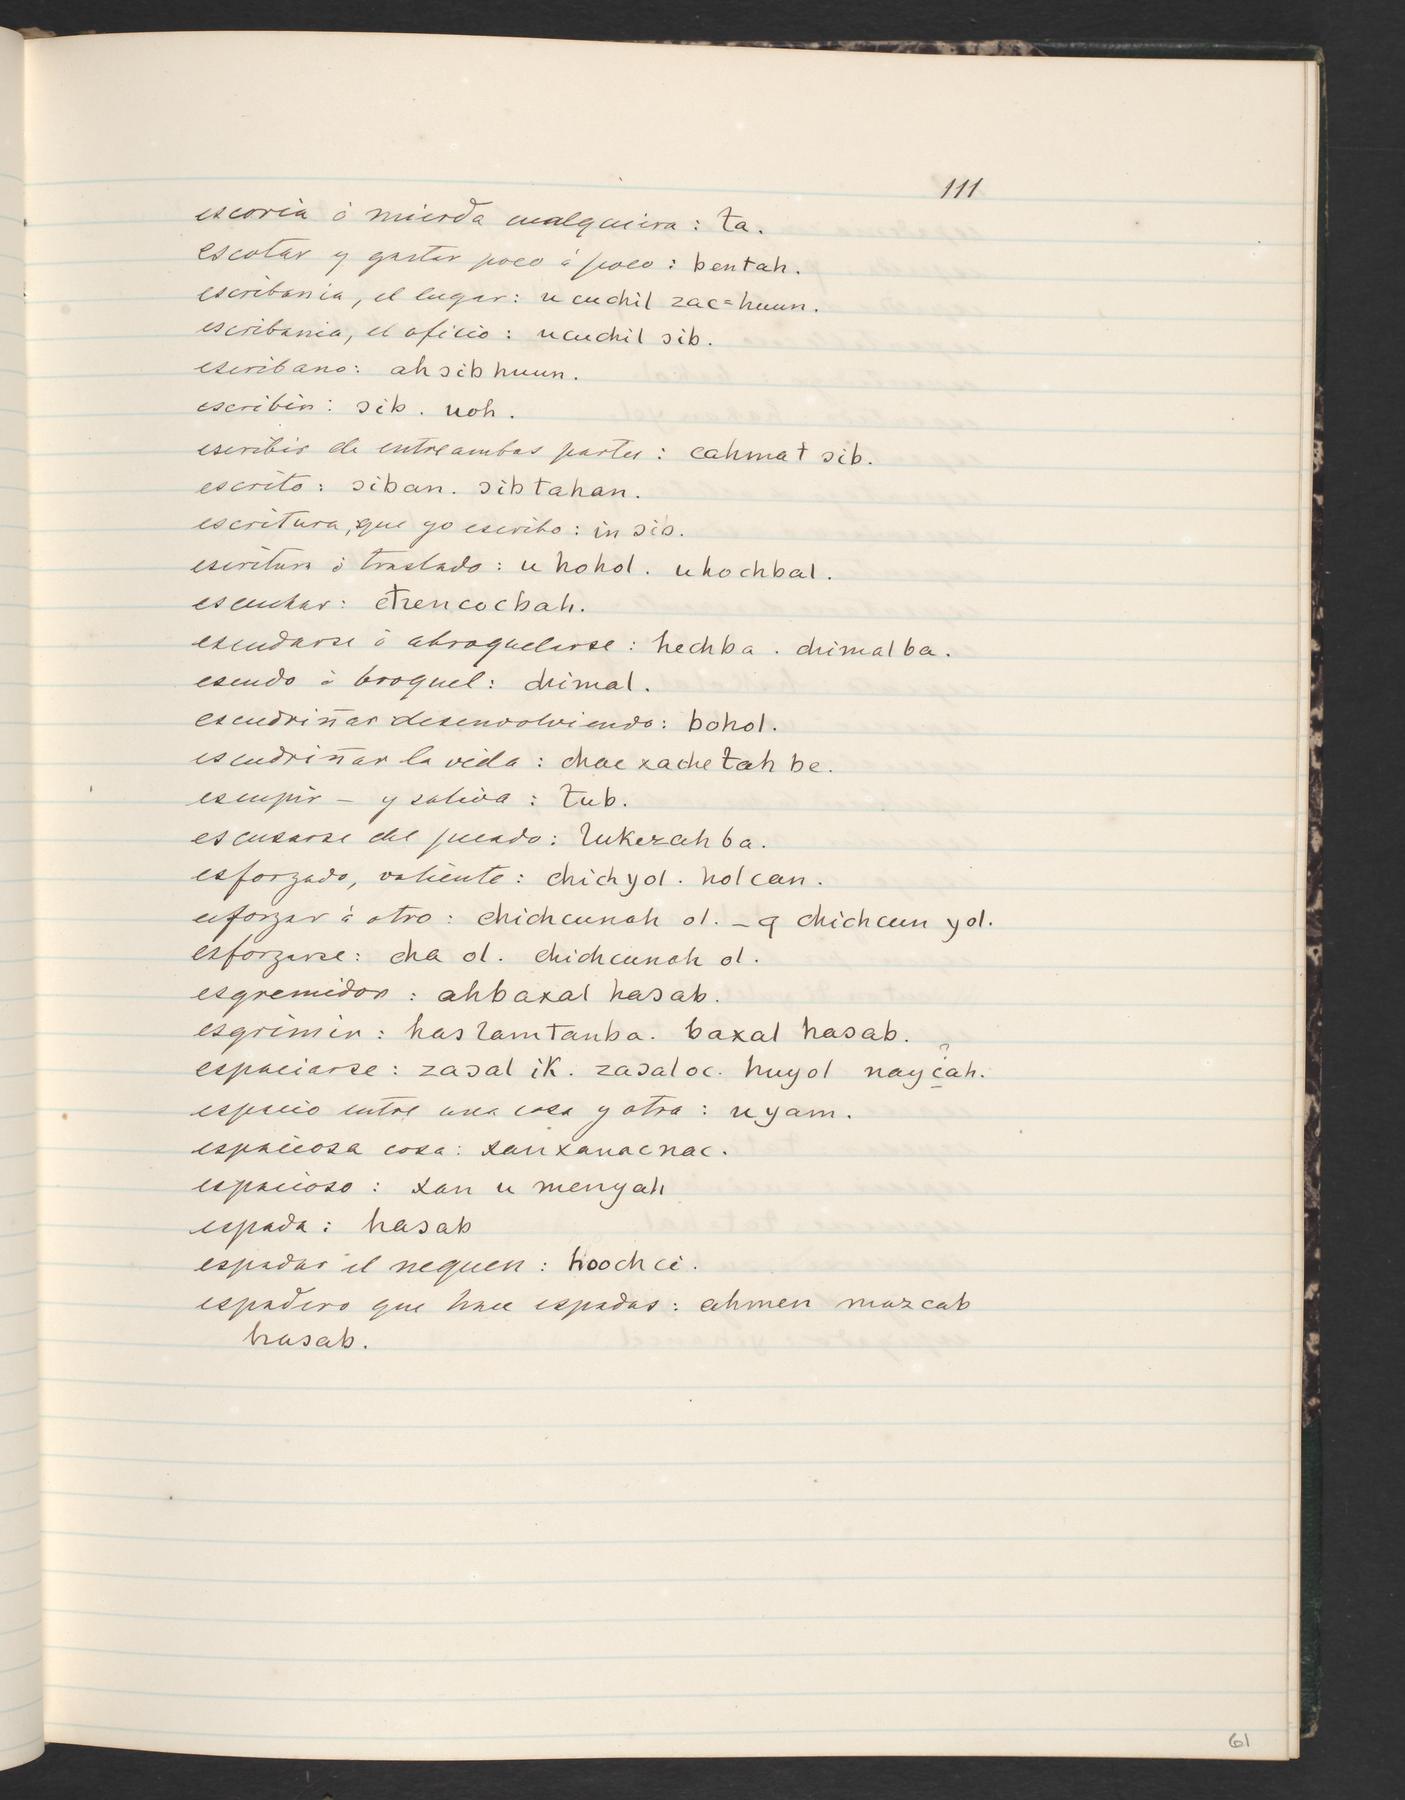 111
escoria ó mierda cualquiera : ta.
escotar y gastar poco á poco : bentah.
escribania, el lugar : u cuchil zac=huun.
escribania, el oficio : ucuchil ɔib.
escribano : ah ɔib huun.
escribir : ɔib . uoh .
escribir de entreambas partes : cahmat ɔib.
escrito : ɔiban. ɔibtahan.
escritura, que yo escribo : in ɔib.
escritura ó traslado : u hohol . u hochbal .
escuchar : chencocbah.
escudarse ó abroquelarse : hechba . chimalba .
escudo ó broquel : chimal .
escudriñar desenvolviendo : bohol .
escudriñar la vida : chac xachetah be .
escupir – y saliva : tub.
escusarse del pecado : lukezah ba .
esforzado, valiente : chichyol . holcan .
esforzar á otro : chichcunah ol. – q chichcun yol.
esforzarse : cha ol . chichcunah ol .
esgremidor : ahbaxal haɔab.
esgrimir : haslamtanba . baxal haɔab .
espaciarse : zaɔal ik . zaɔaloc . huyol naycah.
espacio entre una cosa y otra : uyam .
espaciosa cosa : xanxanacnac .
espacioso : xan u menyah
espada : haɔab
espadar el nequen : hoochci .
espadero que hace espadas : ahmen mazcab
haɔab .
61